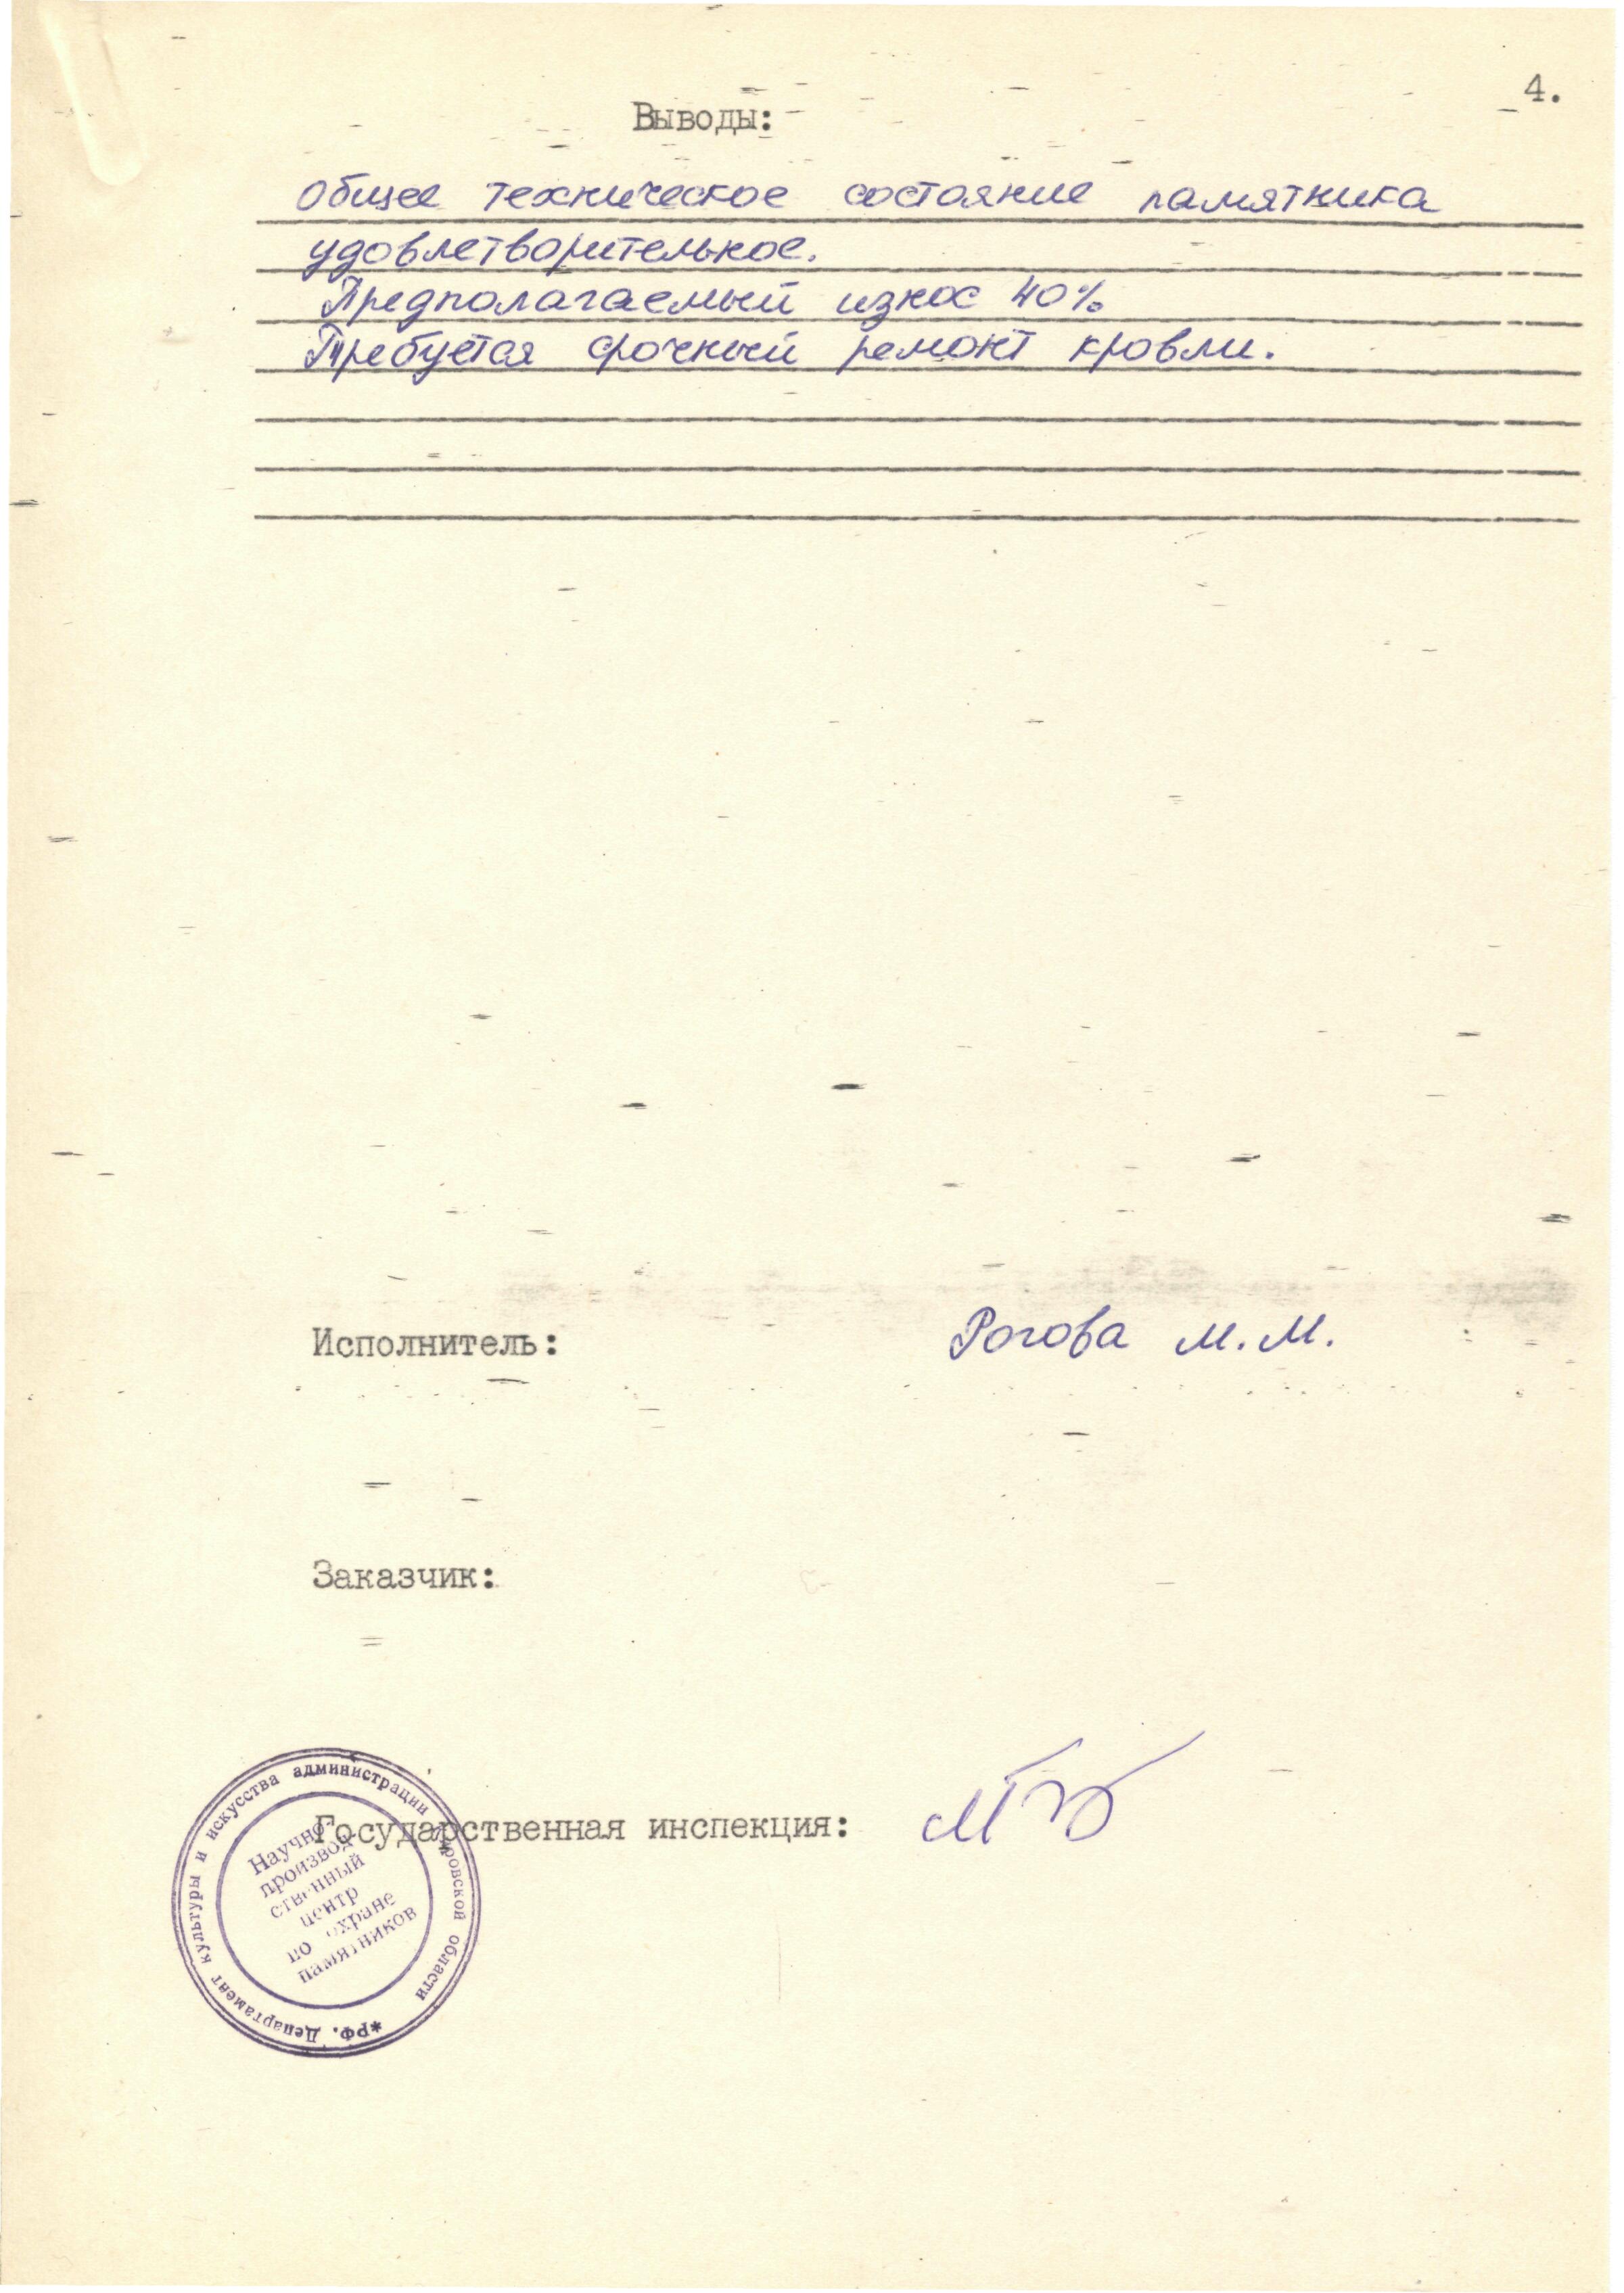 4.
Выводы:
Общее техническое состояние памятника
удовлетворительное.
Предполагаемый износ 40%
Требуется срочный ремонт кровли.
Исполнитель: Рогова М.М.
Заказчик:
Государственная инспекция:
*РФ. Департамент культуры и искусства администрации Кировской области
Научно-
производ-
ственный
центр
по охране
памятников